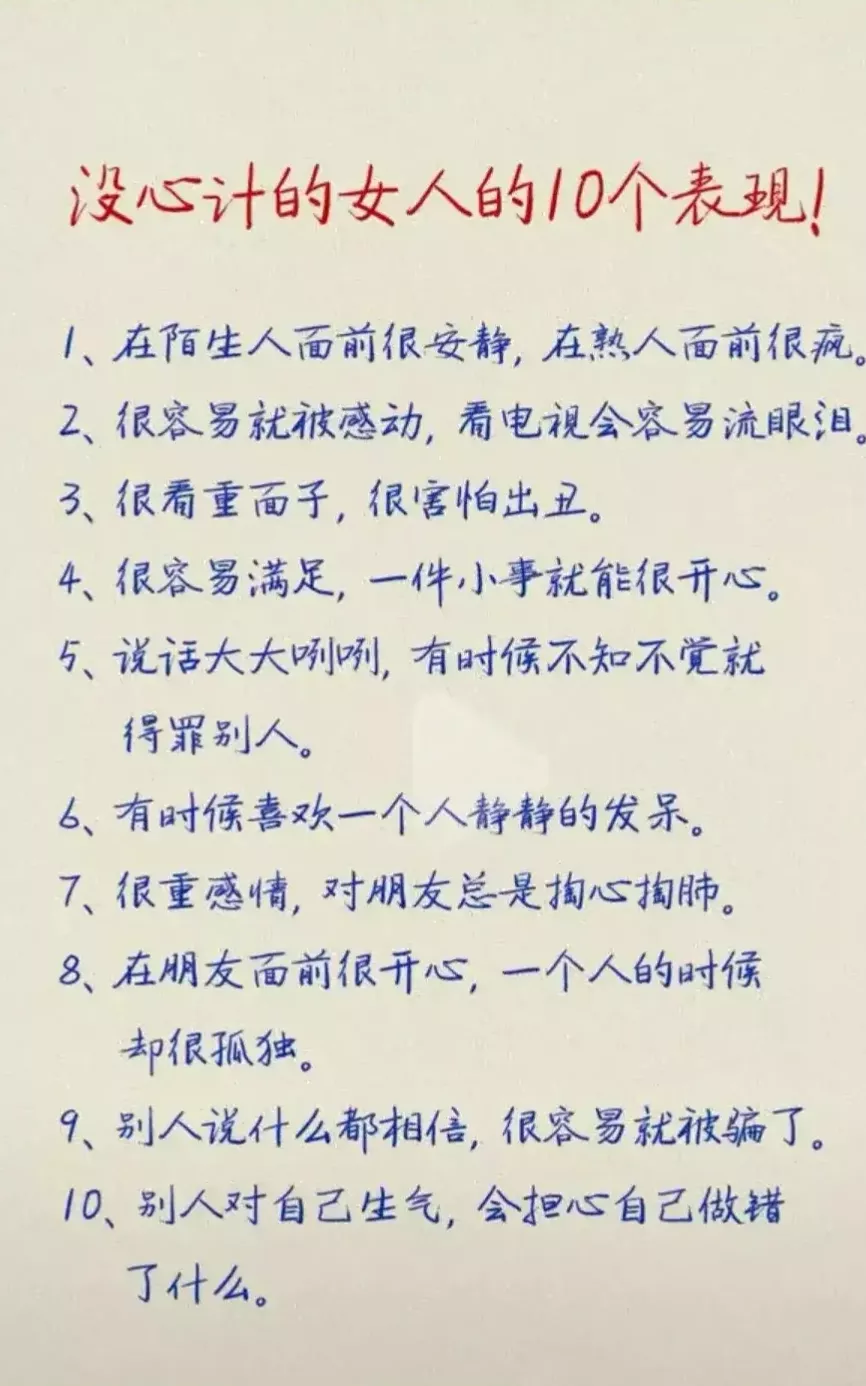 没心计的女人的10个表现!
1、在陌生人面前很安静,在熟人面前很疯。
2、很容易就被感动,看电视会容易流眼泪。
3、很看重面子,很害怕出丑。
4、很容易满足,一件小事就能很开心。
5、说话大大咧咧,有时候不知不觉就
得罪别人。
6、有时候喜欢一个人静静的发呆。
7、很重感情,对朋友总是掏心掏肺。
8、在朋友面前很开心,一个人的时候
却很孤独。
9、别人说什么都相信,很容易就被骗了。
10、别人对自己生气,会担心自己做错
了什么。